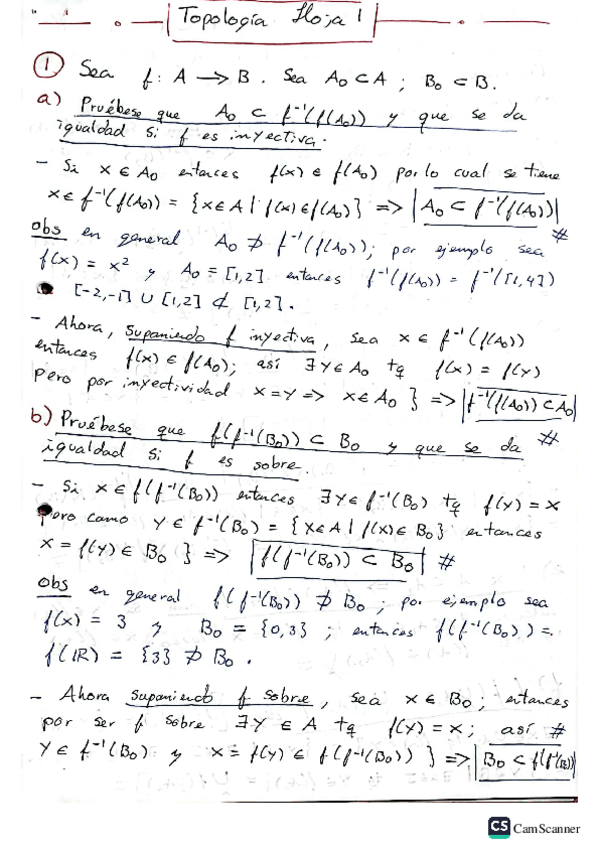 Topología Hoja 1
① Sea f: A → B. Sea A₀ ⊂ A ; B₀ ⊂ B.
a) Pruébese que A₀ ⊂ f⁻¹(f(A₀)) y que se da
igualdad si f es inyectiva.
- Si x ∈ A₀ entonces f(x) ∈ f(A₀) por lo cual se tiene
x ∈ f⁻¹(f(A₀)) = {x ∈ A | f(x) ∈ f(A₀)} => |A₀ ⊂ f⁻¹(f(A₀))|
#
obs en general A₀ ⊅ f⁻¹(f(A₀)); por ejemplo sea
f(x) = x² y A₀ = [1,2] entonces f⁻¹(f(A₀)) = f⁻¹([1,4])
[-2,-1] ∪ [1,2] ⊄ [1,2].
- Ahora, suponiendo f inyectiva, sea x ∈ f⁻¹(f(A₀))
entonces f(x) ∈ f(A₀); así ∃ y ∈ A₀ tq f(x) = f(y)
pero por inyectividad x = y => x ∈ A₀ } => |f⁻¹(f(A₀)) ⊂ A₀|
#
b) Pruébese que f(f⁻¹(B₀)) ⊂ B₀ y que se da
igualdad si f es sobre
- Si x ∈ f(f⁻¹(B₀)) entonces ∃ y ∈ f⁻¹(B₀) tq f(y) = x
pero como y ∈ f⁻¹(B₀) = {x ∈ A | f(x) ∈ B₀} entonces
x = f(y) ∈ B₀ } => |f(f⁻¹(B₀)) ⊂ B₀| #
obs en general f(f⁻¹(B₀)) ⊅ B₀ ; por ejemplo sea
f(x) = 3 y B₀ = {0,3} ; entonces f(f⁻¹(B₀)) =
f(ℝ) = {3} ⊅ B₀.
- Ahora suponiendo f sobre, sea x ∈ B₀; entonces
por ser f sobre ∃ y ∈ A tq f(y) = x; así #
y ∈ f⁻¹(B₀) y x = f(y) ∈ f(f⁻¹(B₀)) } => |B₀ ⊂ f(f⁻¹(B₀))|
CS CamScanner